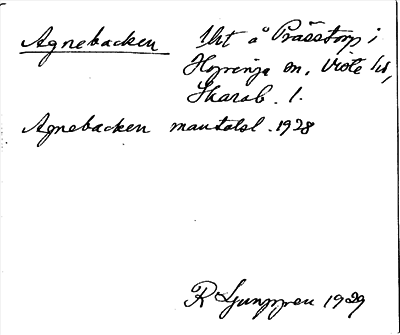 Agnebacken 1ht å Prässtorp i
Hyringa sn, Viste hd,
Skarab. l.
Agnebacken mantalsl. 1928
R Ljunggren 1929